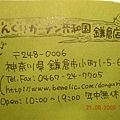 どんぐりガーデン共和国 鎌倉店
〒248-0006
神奈川県 鎌倉市小町1-5-6
Tel/Fax: 0467-24-7705
http://www.benelic.com/dongu
Open: 10:00~19:00 年中無休
21.08.2006